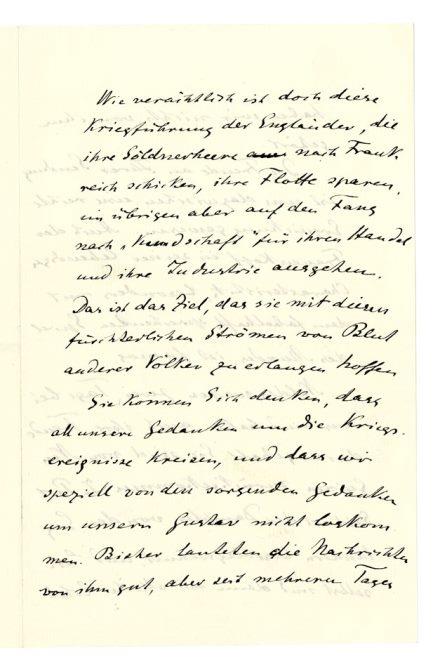 Wie verächtlich ist doch diese
Kriegführung der Engländer, die
ihre Söldnerheere nach Frank-
reich schicken, ihre Flotte sparen,
im übrigen aber auf den Fang
nach „Kundschaft" für ihren Handel
und ihre Industrie ausgehen.
Das ist das Ziel, das sie mit diesen
fürchterlichen Strömen von Blut
anderer Völker zu erlangen hoffen
Sie können Sich denken, dass
all unsere Gedanken um die Kriegs-
ereignisse kreisen, und dass wir
speziell von den sorgenden Gedanken
um unsern Gustav nicht loskom
men. Bisher lauteten die Nachrichten
von ihm gut, aber seit mehreren Tagen